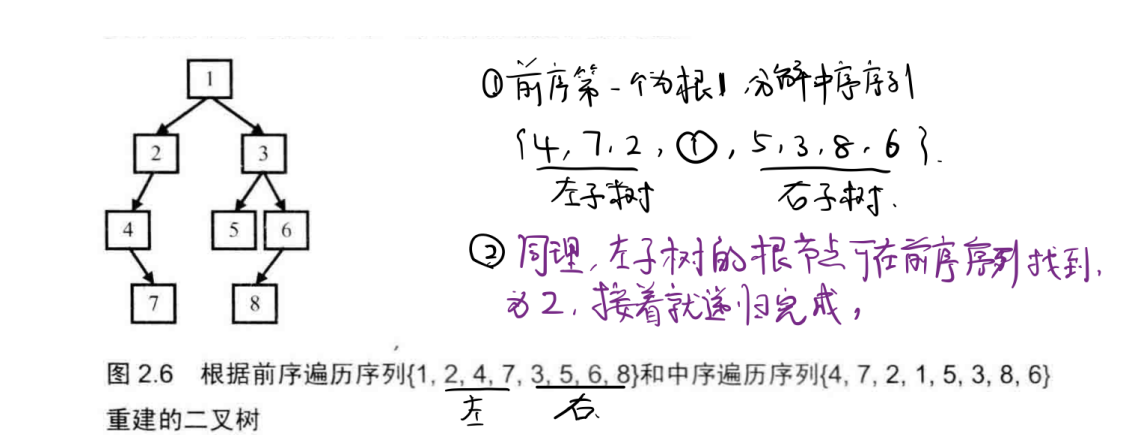 1
2
3
4
5
6
7
8
①前序第一个为根1,分解中序序列
{4,7,2,①,5,3,8,6}.
左子树
右子树.
②同理,左子树的根节点可在前序序列找到,
为2,接着就递归完成,
图 2.6 根据前序遍历序列{1, 2, 4, 7, 3, 5, 6, 8}和中序遍历序列{4, 7, 2, 1, 5, 3, 8, 6}
左
右.
重建的二叉树